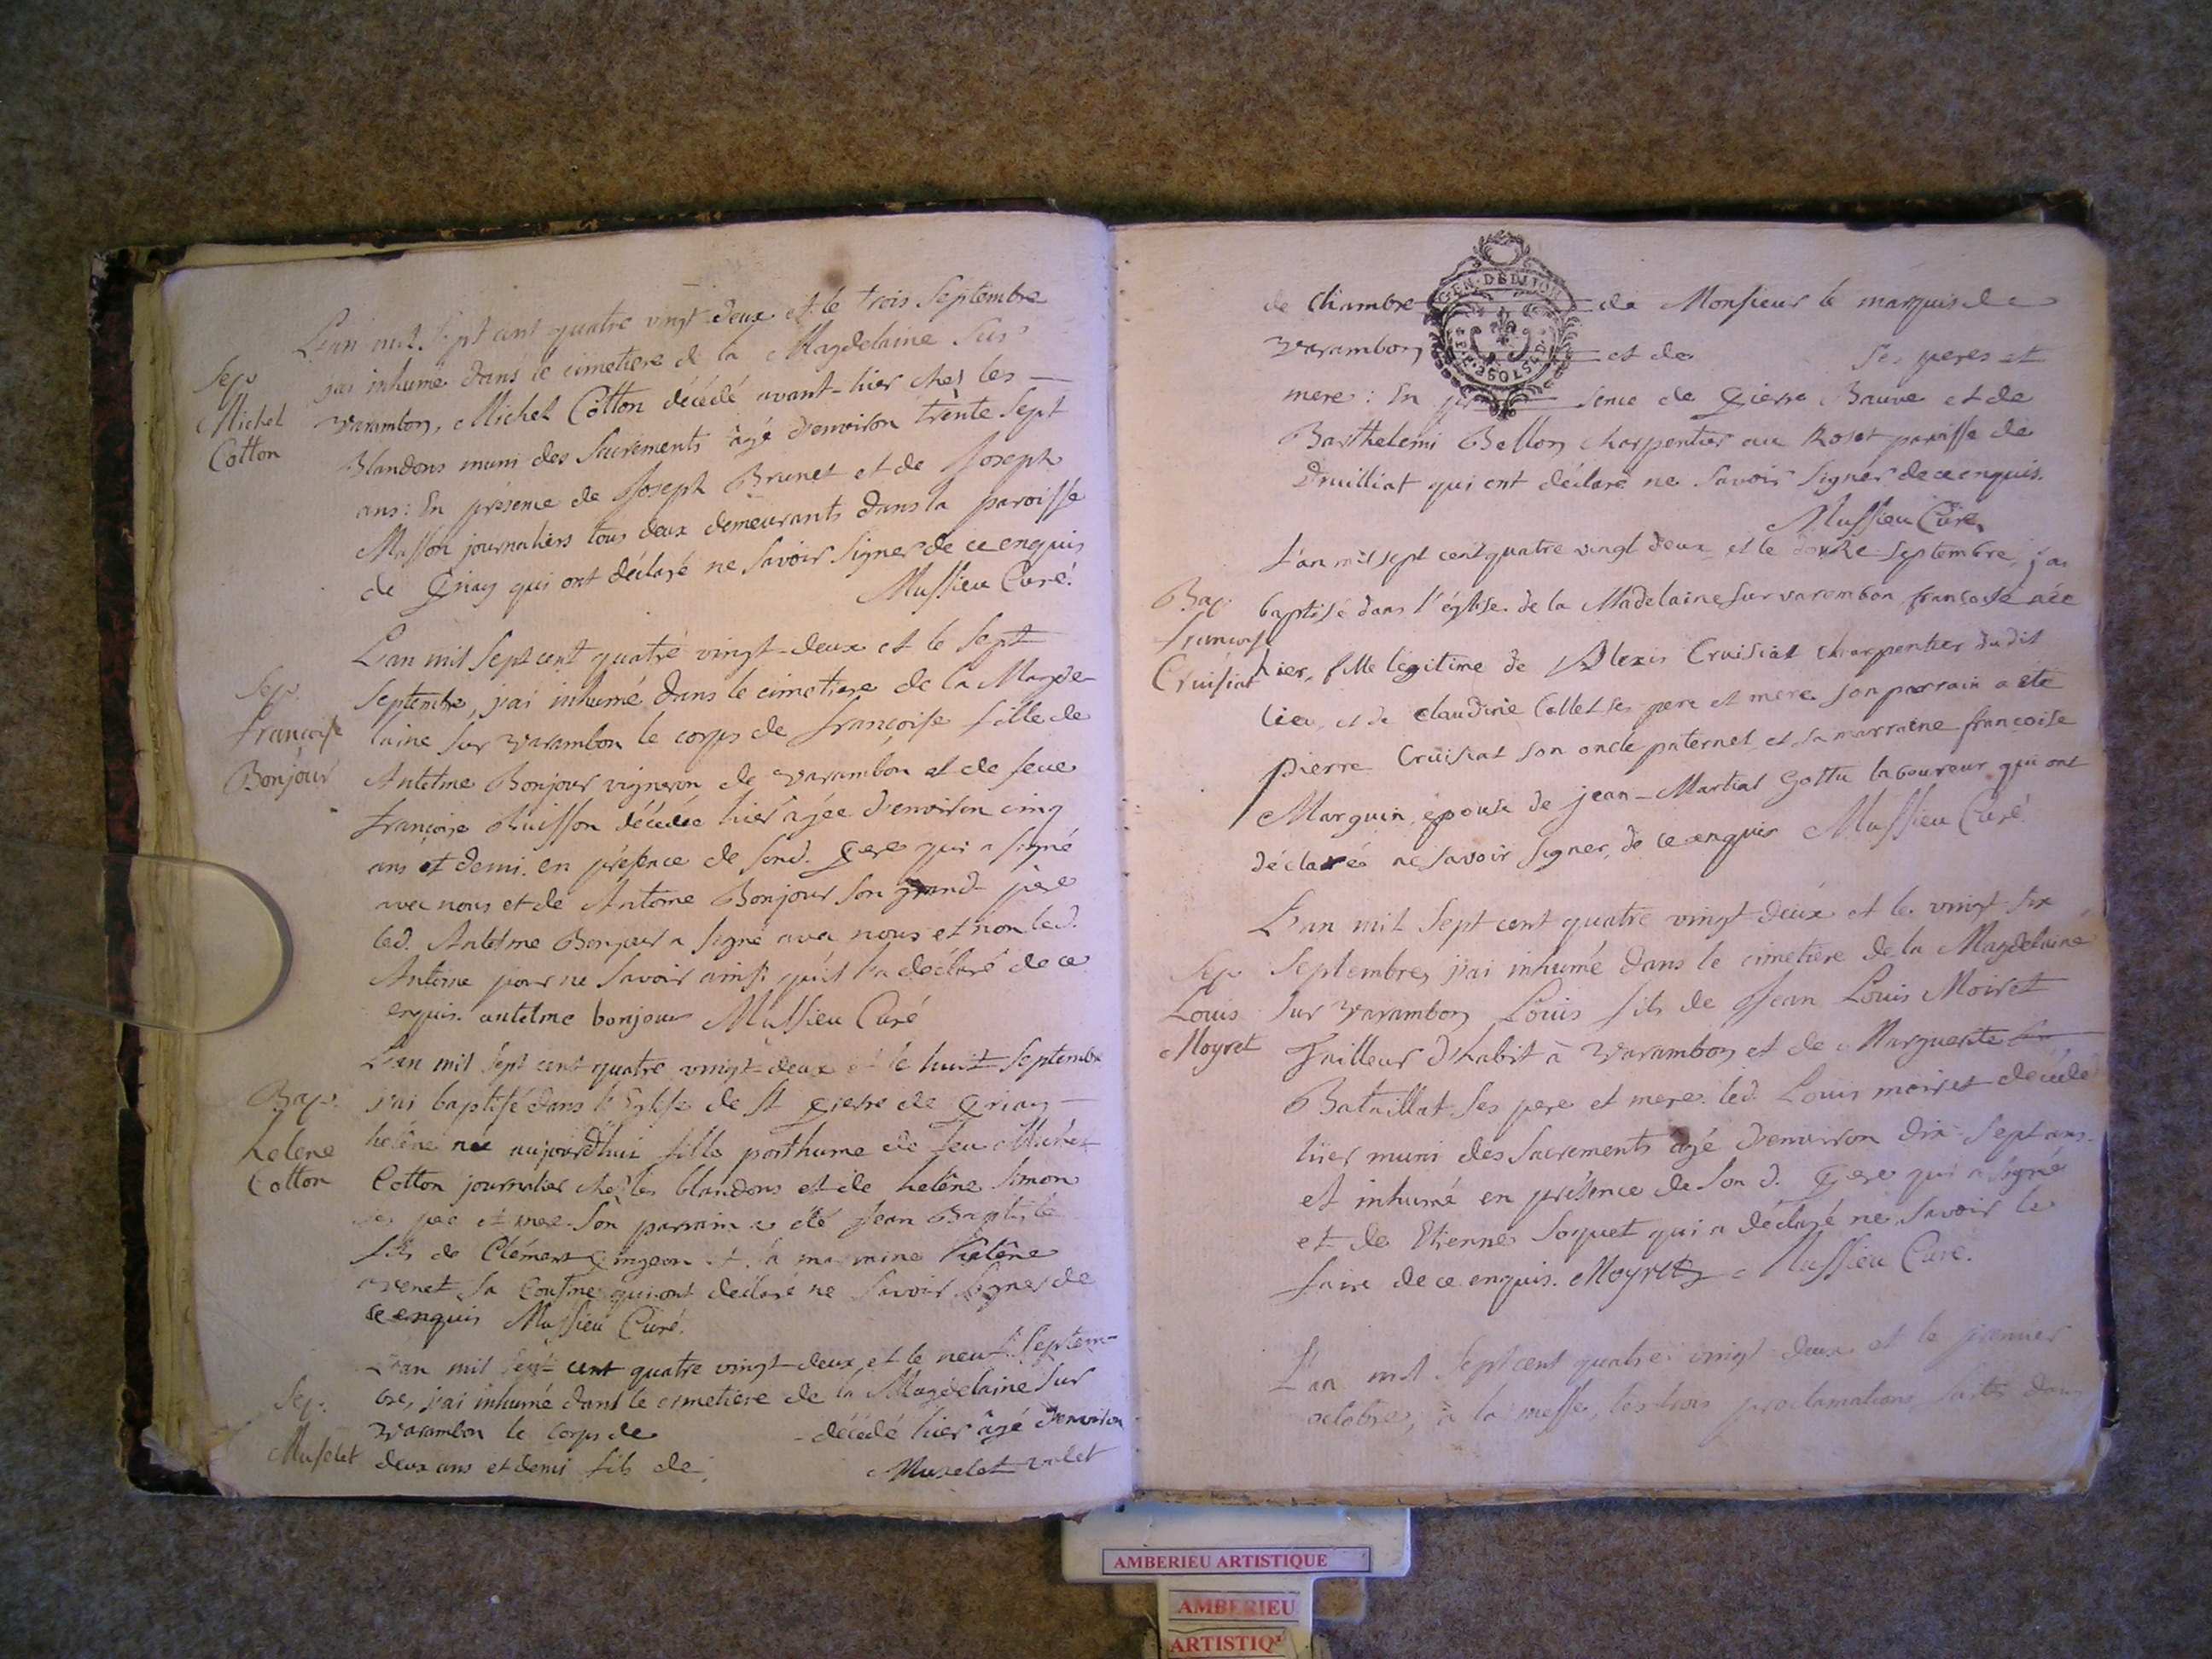 L'an mil sept cent quatre vingt-deux et le trois Septembre
j'ai inhumé dans le cimetiere de la Magdelaine Sur
Varambon, Michel Cotton décédé avant-hier chez les
Blandons muni des Sacrements âgé d'environ trente Sept
ans: En présence de Joseph Brunet et de Joseph
Masson journaliers tous deux demeurants dans la paroisse
de Priay qui ont déclaré ne Savoir Signer de ce enquis
Mussieu Curé.
Sep.
Michel
Cotton
L'an mil Sept cent quatre vingt-deux et le Sept
Septembre, j'ai inhumé dans le cimetiere de la Magde-
laine Sur Varambon le corps de françoise fille de
Antelme Bonjour vigneron de Varambon et de feue
françoise Buisson décédée hier âgée d'environ cinq
ans et demi. en présence de Son d. Pere qui a Signé
avec nous et de Antoine Bonjour Son grand-père
led. Antelme Bonjour a Signé avec nous et non led.
Antoine pour ne Savoir ainsi qu'il l'a déclaré de ce
enquis. antelme bonjour Mussieu Curé
Sep.
françoise
Bonjour
L'an mil Sept cent quatre vingt-deux et le huit Septembre
j'ai baptisé dans l'Eglise de St Pierre de Priay
helêne née aujourd'hui fille posthume de feu Michel
Cotton journalier chez les blandons et de helêne Simon
ses pere et mere. Son parrain a été Jean Baptiste
fils de Clément Pingeon et la marraine helêne
venet Sa Cousine qui ont déclaré ne Savoir Signer de
ce enquis Mussieu Curé.
Bap.
helene
Cotton
L'an mil Sept cent quatre vingt-deux, et le neuf Septem-
bre, j'ai inhumé dans le cimetiere de la Magdelaine Sur
Varambon le Corps de décédé hier âgé d'environ
deux ans et demi fils de Muselet valet
Sep.
Muselet
de Chambre de Monsieur le marquis de
Varambon et de Ses peres et
mere: En présence de Pierre Bauve et de
Barthelemi Bellon Charpentier au Roset paroisse de
Druilliat qui ont déclaré ne Savoir Signer de ce enquis.
Mussieu Curé
GEN. DE DIJON
L'an mil sept cent quatre vingt deux et le douze Septembre j'ai
baptisé dans l'église de la Madelaine sur varembon françoise née
hier, fille légitime de Alexis Cruisiat Charpentier dudit
lieu, et de Claudine Collet ses pere et mere son parrain a été
pierre Cruisiat son oncle paternel et sa marraine françoise
Marguin épouse de jean-Martial Gottu laboureur qui ont
déclarés ne savoir signer, de ce enquis Mussieu Curé.
Bap.
françoise
Cruisiat
L'an mil Sept cent quatre vingt-deux et le vingt-six
Septembre, j'ai inhumé dans le cimetiere de la Magdelaine
Sur Varambon Louis fils de Jean Louis Moiret
Tailleur d'habit à Varambon et de Marguerite
Bataillat Ses pere et mere. led. Louis moiret décédé
hier muni des Sacrements âgé d'environ dix-Sept ans
et inhumé en présence de Son d. Pere qui a Signé
et de Etienne Soquet qui a déclaré ne Savoir le
faire de ce enquis. Moyret Mussieu Curé.
Sep
Louis
Moyret
L'an mil Sept cent quatre vingt-deux et le premier
octobre, à la messe, les trois proclamations faites dans
AMBERIEU ARTISTIQUE
AMBERIEU
ARTISTIQ